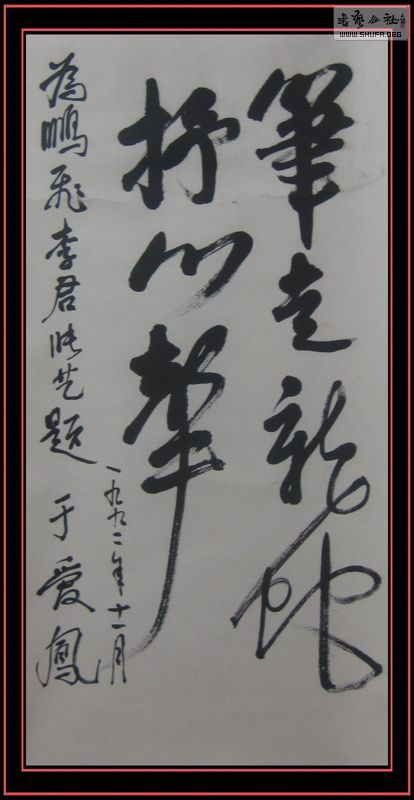 筆走龍蛇
抒心聲
為鵬飛李君艺題
一九九二年十一月
于愛鳳
書藝公社
WWW.SHUFA.ORG